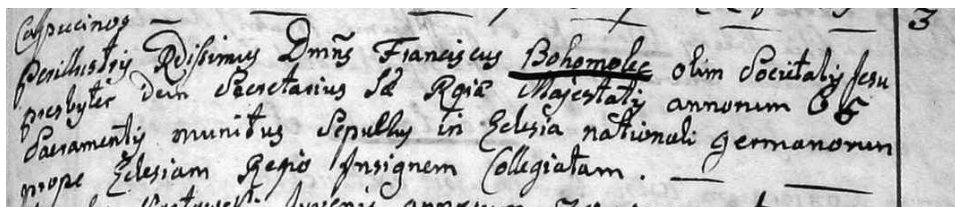 Capucinos — 3
Perillustris Rdissimus Dmns Franciscus Bohomolec olim Societatis Jesu
presbyter dein Secretarius Sæ Rgiæ Majestatis annorum 66
Sacramentis munitus Sepultus in Eclesia nationali germanorum
prope Eclesiam Regio Insignem Collegiatam. —
juvenis annorum